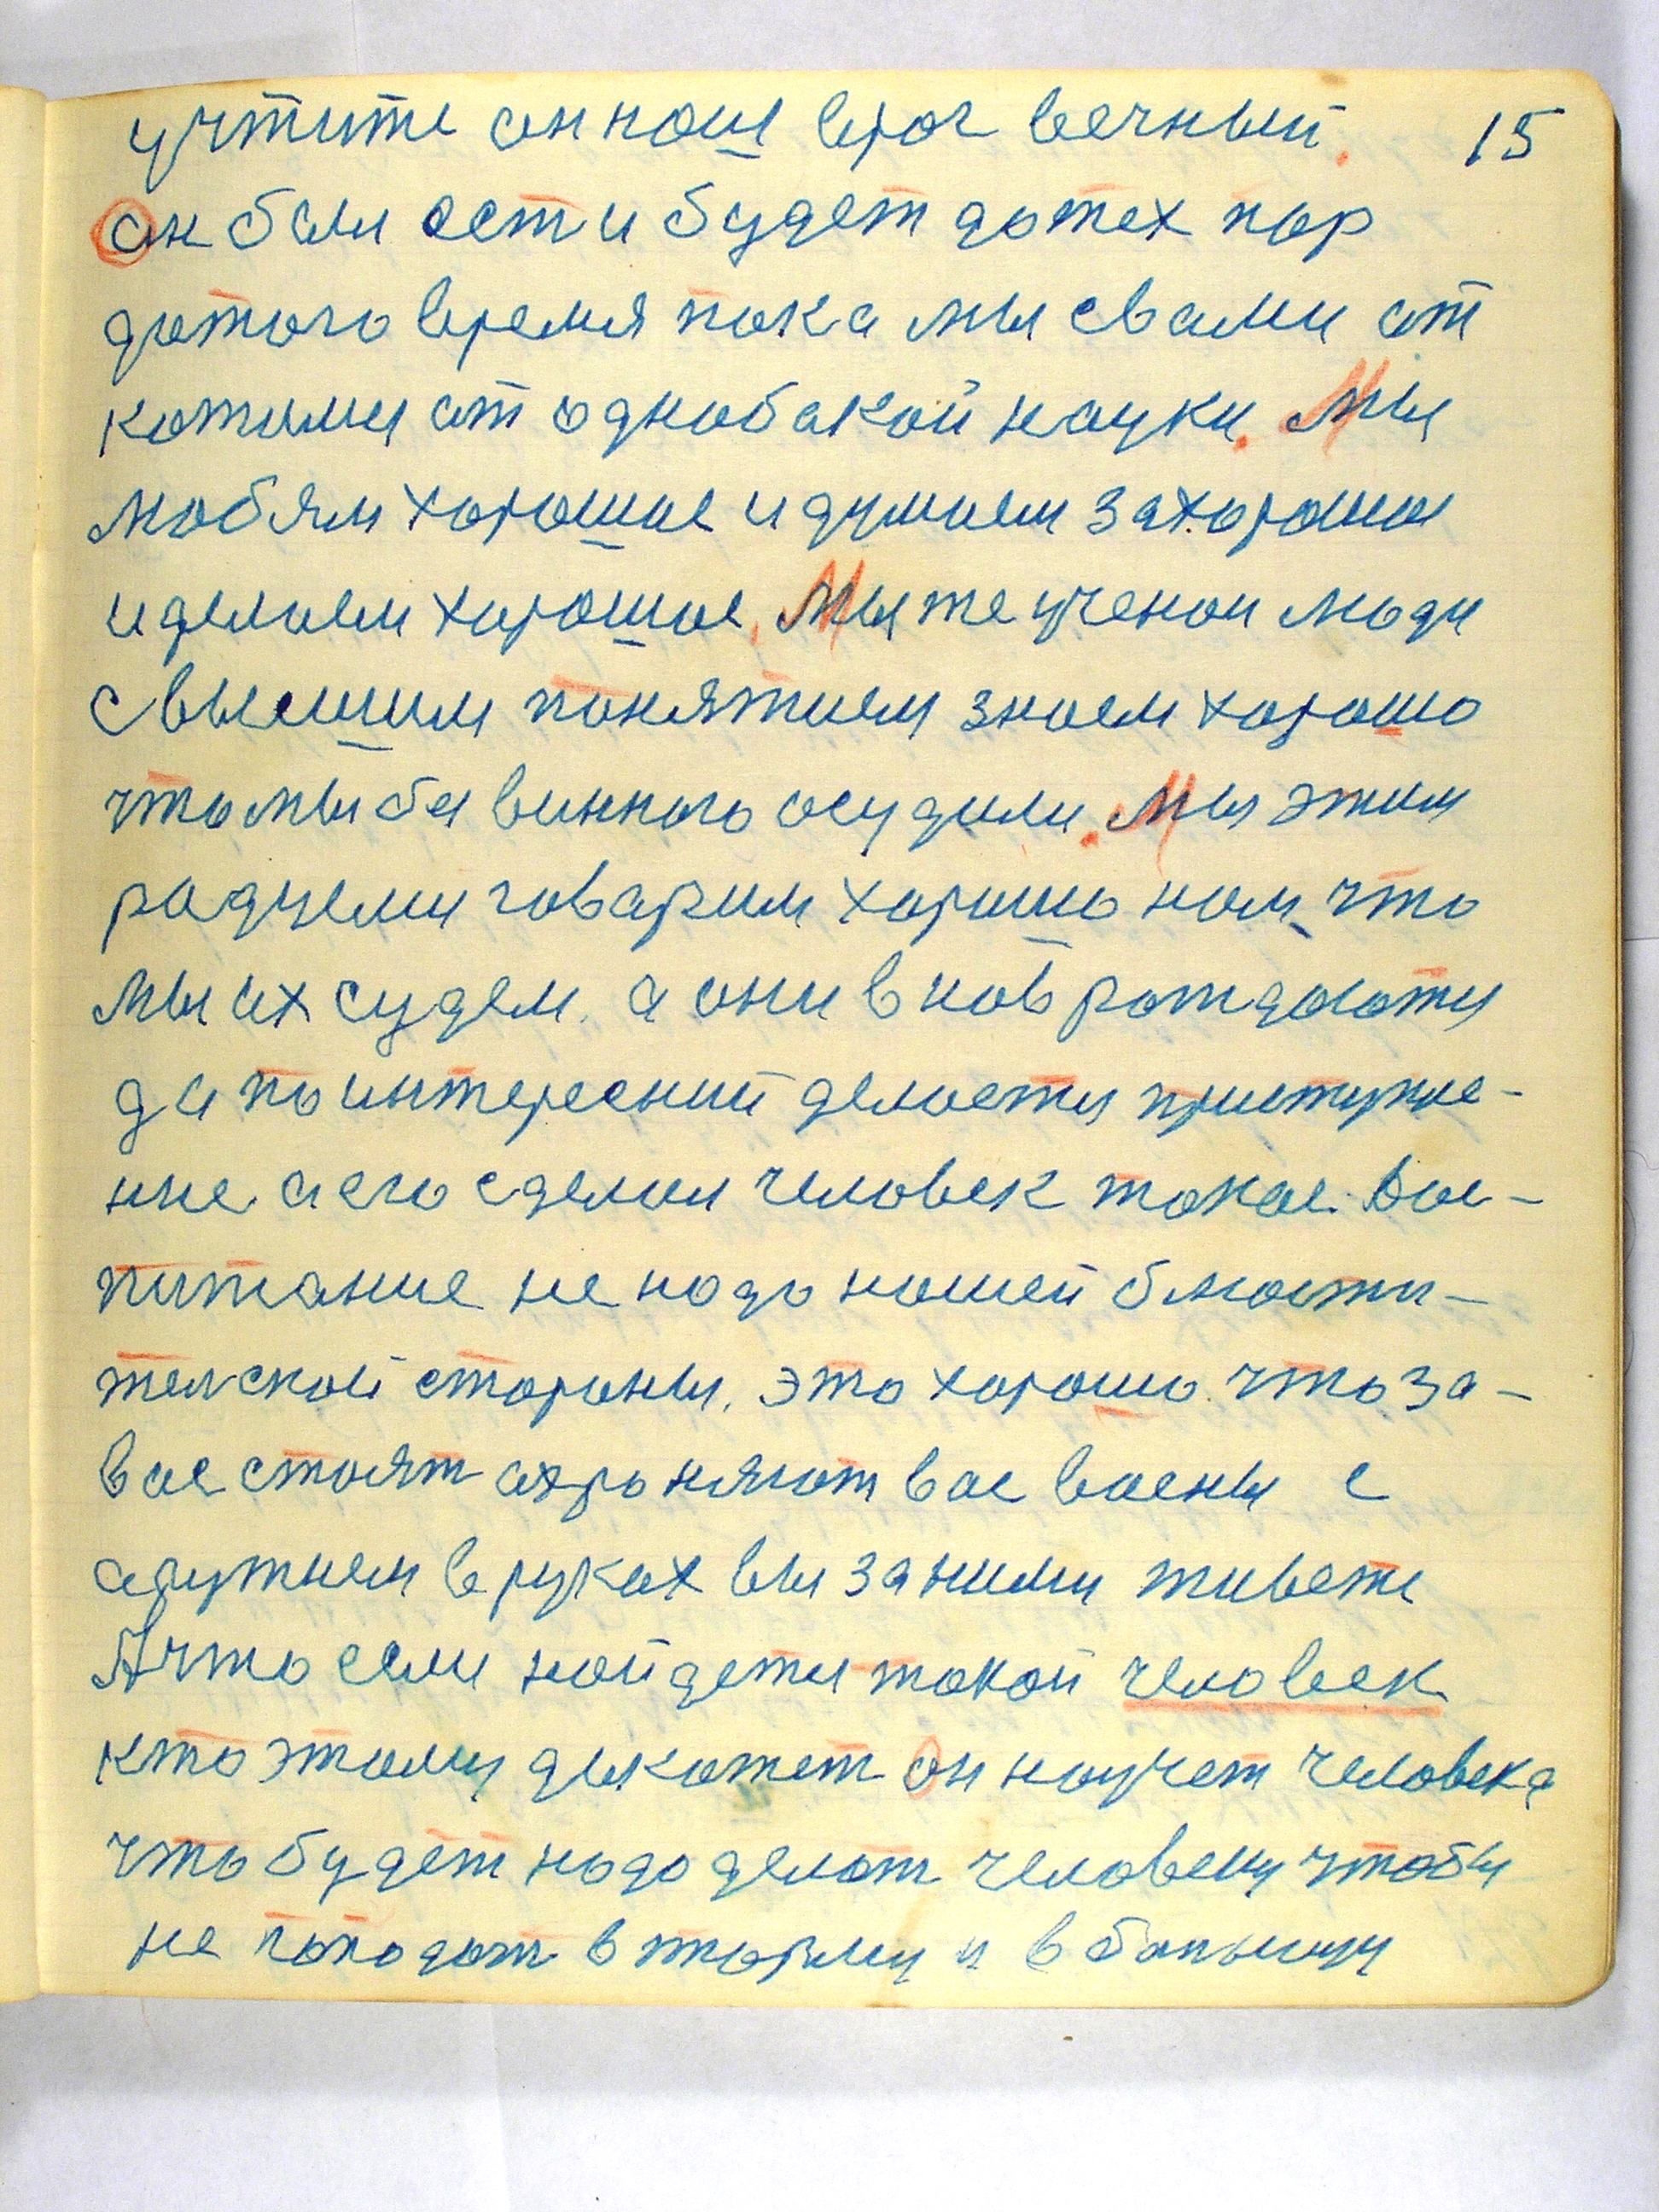 учтите он наш враг вечный. 15
он был ест и будет до тех пор
дотого время пока мы с вами от
кажимся от однобакой науки. Мы
любям хорошое и думаем за хорошое
и делаем хорошое. Мы же ученои люди
с высшим понятием знаем хорошо
что мы бе винного осудили. Мы этим
радуеми говарим хорошо нам, что
мы их судем. а они внов рождаются
да по интересний делается приступле-
ние. а его сделал человек такое. Вос-
питание не надо нашей блюсти-
телской стороны. это хорошо. что за-
вас стоят охроняют вас ваены с
аружием в руках вы за ними живете
А что если найдется такой человек
кто этому докажет он научет человека
что будет надо делат человеку чтобы
не поподат в тюрму и в болницу